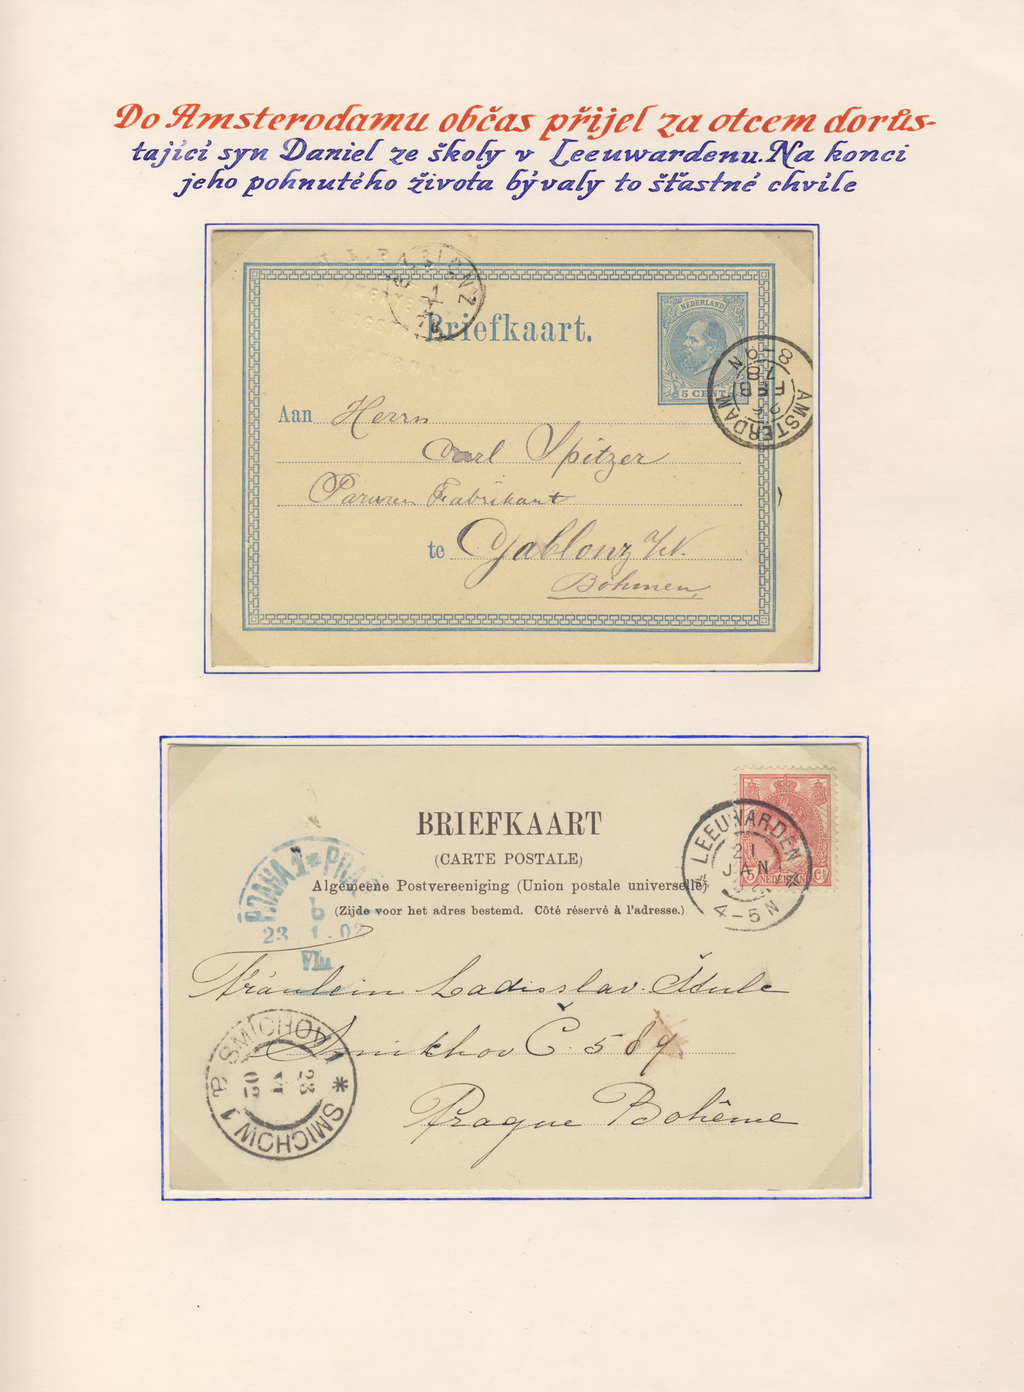 Do Amsterodamu občas přijel za otcem dorůs-
tající syn Daniel ze školy v Leeuwardenu. Na konci
jeho pohnutého života bývaly to šťastné chvíle
Briefkaart.
NEDERLAND
5 CENT
AMSTERDAM
FEB
78
8-9N
Aan Herrn
Carl Spitzer
Fabrikant
te Gablonz a/N.
Böhmen
BRIEFKAART
(CARTE POSTALE)
Algemeene Postvereeniging (Union postale universelle)
(Zijde voor het adres bestemd. Côté réservé à l'adresse.)
LEEUWARDEN
21
JAN
4-5N
5 NEDERLAND Ct
PRAHA 1 * PRAG
b
23 1. 02
VIII
Fräulein Ladisslav Štule
Smikhov Č. 589
Prague Bohême
SMICHOV 1 * SMICHOW 1
23
1
02